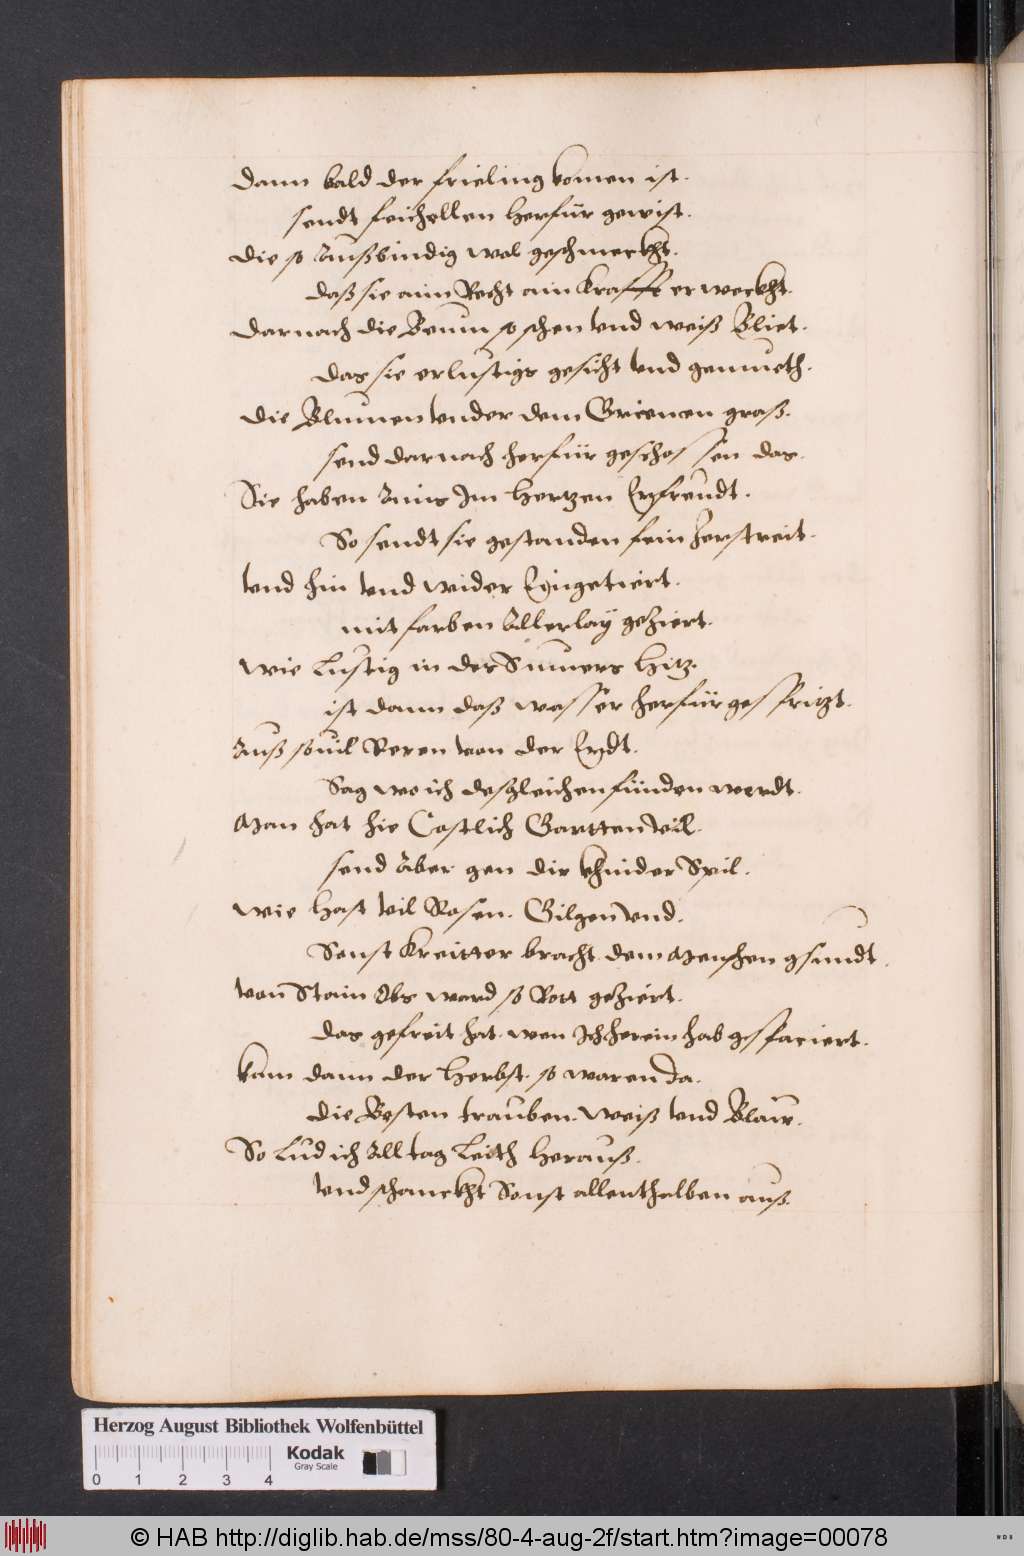 dann bald der frieling komen ist.
sendt feichellen herfür gewist.
die so Außbindig wol geschmeckht.
daß sie aim Recht ain krafft erweckht.
darnach die Beum so schen vnd weiß Bliet.
das sie erlustigt gesicht vnd gemueth.
die Blumen vnder dem Grienen graß.
send darnach herfür geschossen das.
Sie haben Ains Im hertzen Erfreudt.
So sendt sie gestanden fein zerstreit.
vnd hin vnd wider Eingetiert.
mit farben Allerlaÿ geziert.
wie Lustig in des Sumers hitz.
ist dann daß wasser herfür gespritzt.
Auß souil Reren von der Erdt.
Sag wo ich desgleichen fünden werdt.
Man hat hie Costlich Gartten vil.
send Aber gen dir khinder Spil.
wie hast vil Rosen. Gilgen vnd.
Sonst kreitter bracht dem menschen gsundt.
von Stain Obs ward so Rott geziert.
das gefreit hat. wen Ich herein hab gefaciert.
kam dann der herbst. so waren da.
die Besten trauben. weiß vnd Blaw.
So Lud ich All tag Leith herauß.
vnd schanckht Sonst allenthalben auß.
Herzog August Bibliothek Wolfenbüttel
0 1 2 3 4
Kodak
Gray Scale
© HAB http://diglib.hab.de/mss/80-4-aug-2f/start.htm?image=00078